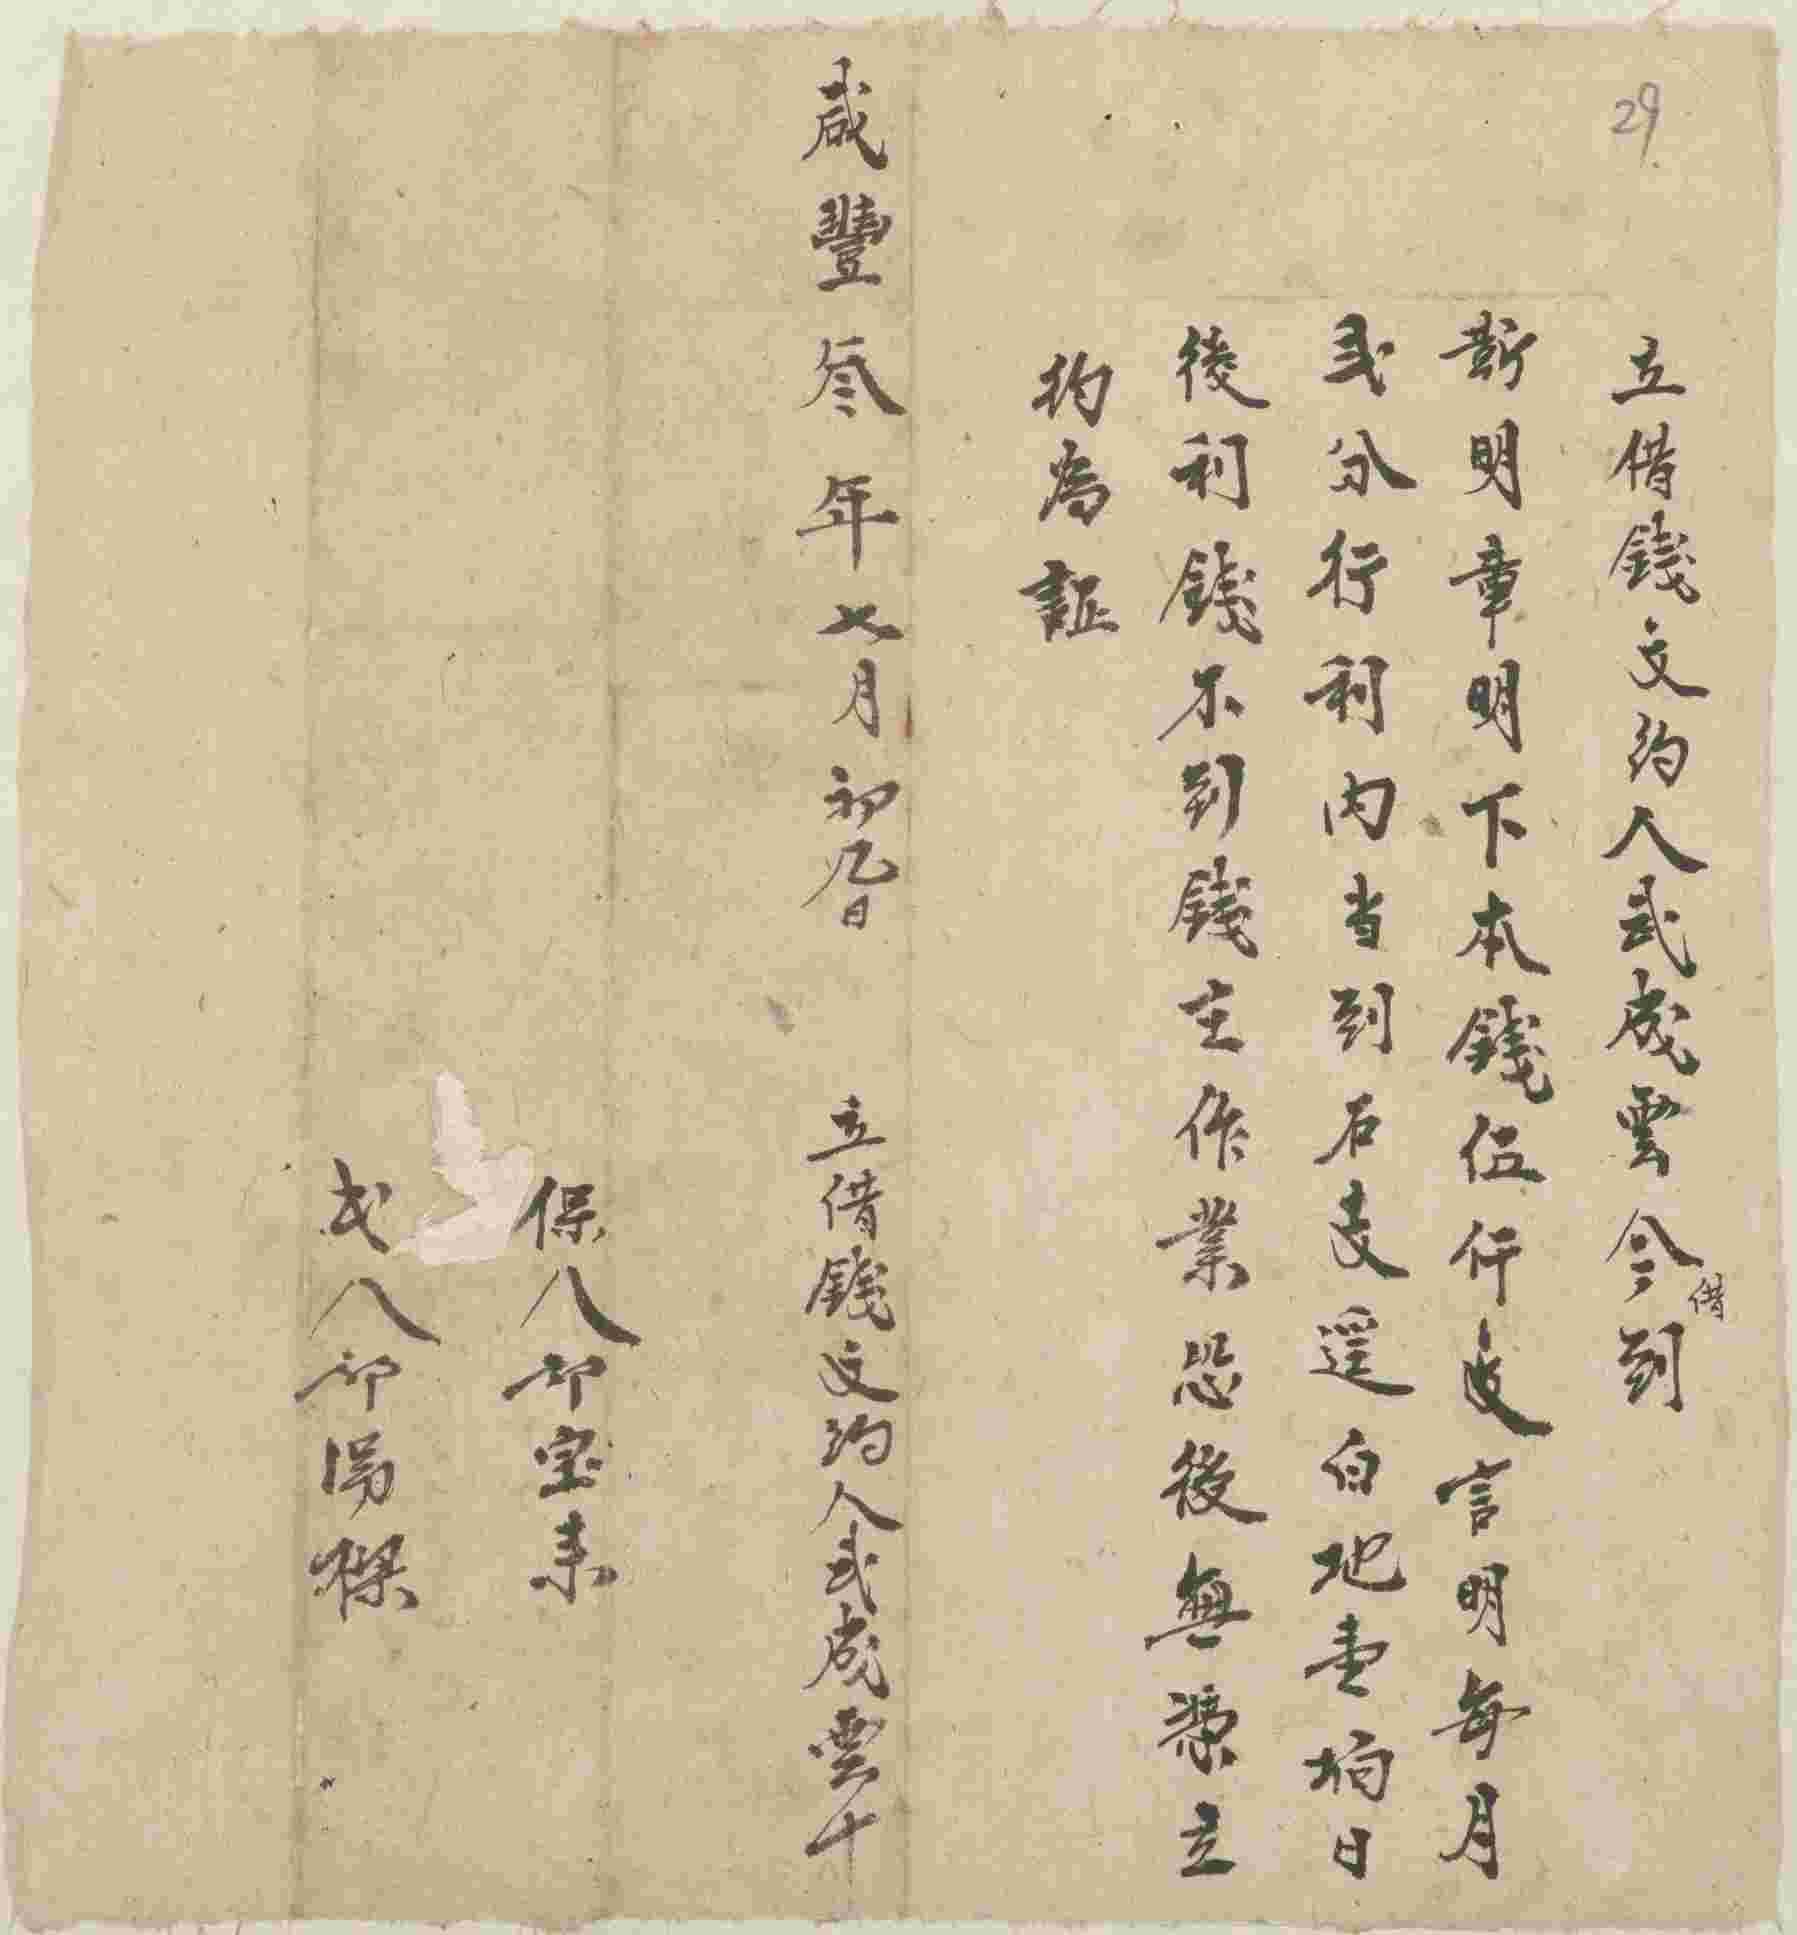 29
立借錢文約人武成雲今借到
靳明章明下本錢伍仟文言明每月
弍分行利内当到石 遥白地壹垧日
後利錢不到錢主作業恐後無憑立
約為証
咸豐叁年七月初九日　立借錢文約人武成雲十
保人 宝未
武人